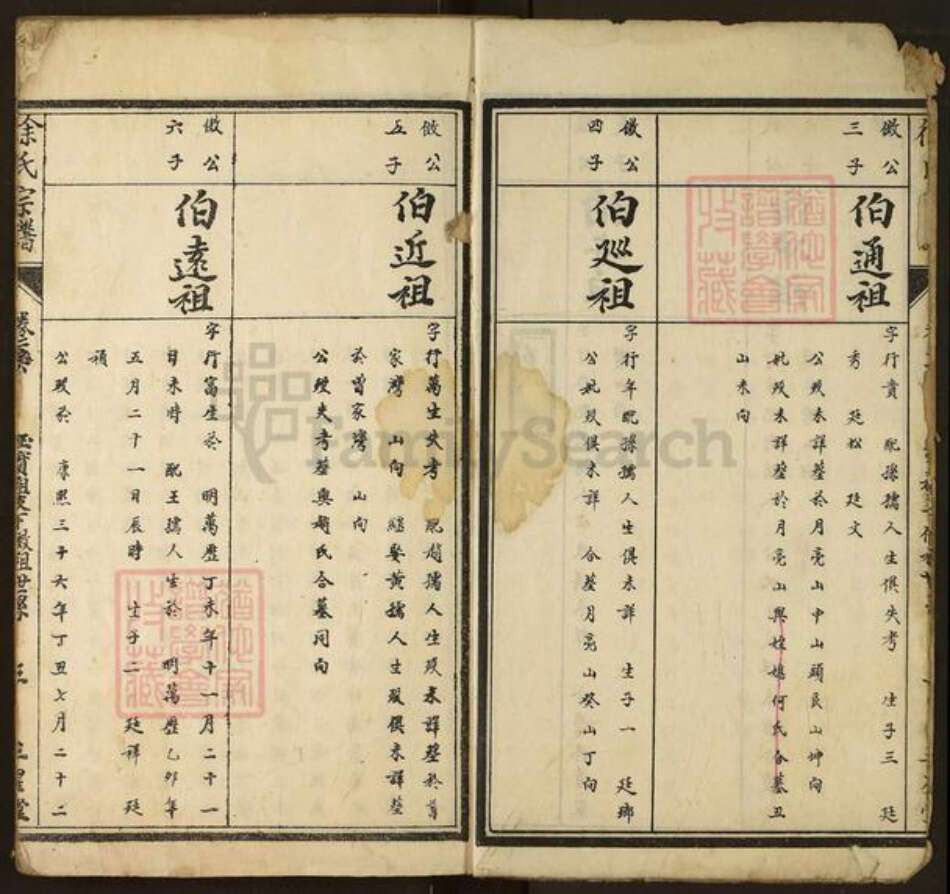 儌公三子
伯通祖
字行貴 配孫孺人生俱失考 生子三 廷
秀 廷松 廷文
公歿未詳塟於月亮山中山頭艮山坤向
妣歿未詳塟於月亮山與姪媳何氏合墓丑
山未向
儌公四子
伯廵祖
字行年配孫孺人生俱未詳 生子一 廷瑯
公妣歿俱未詳 合塟月亮山癸山丁向
儌公五子
伯近祖
字行萬生失考 配趙孺人生歿未詳塟於曾
家灣 山向 繼娶黃孺人生歿俱未詳塟
於曾家灣 山向
公歿失考塟與趙氏合墓同向
儌公六子
伯遠祖
字行富生於 明萬歷丁未年十一月二十一
日未時 配王孺人生於 明萬歷乙卯年
五月二十一日辰時 生子二 廷祥 廷
禎
公歿於 康熙三十六年丁丑七月二十二
徐氏宗譜
FamilySearch